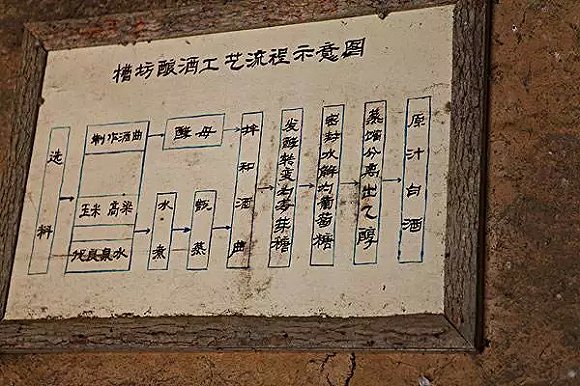 槽坊酿酒工艺流程示意图
选料
制作酒曲
玉米 高米
优良泉水
酵母
水煮
甑蒸
拌和酒曲
发酵转变为麦芽糖
密封水解为葡萄糖
蒸馏分离出乙醇
原汁白酒